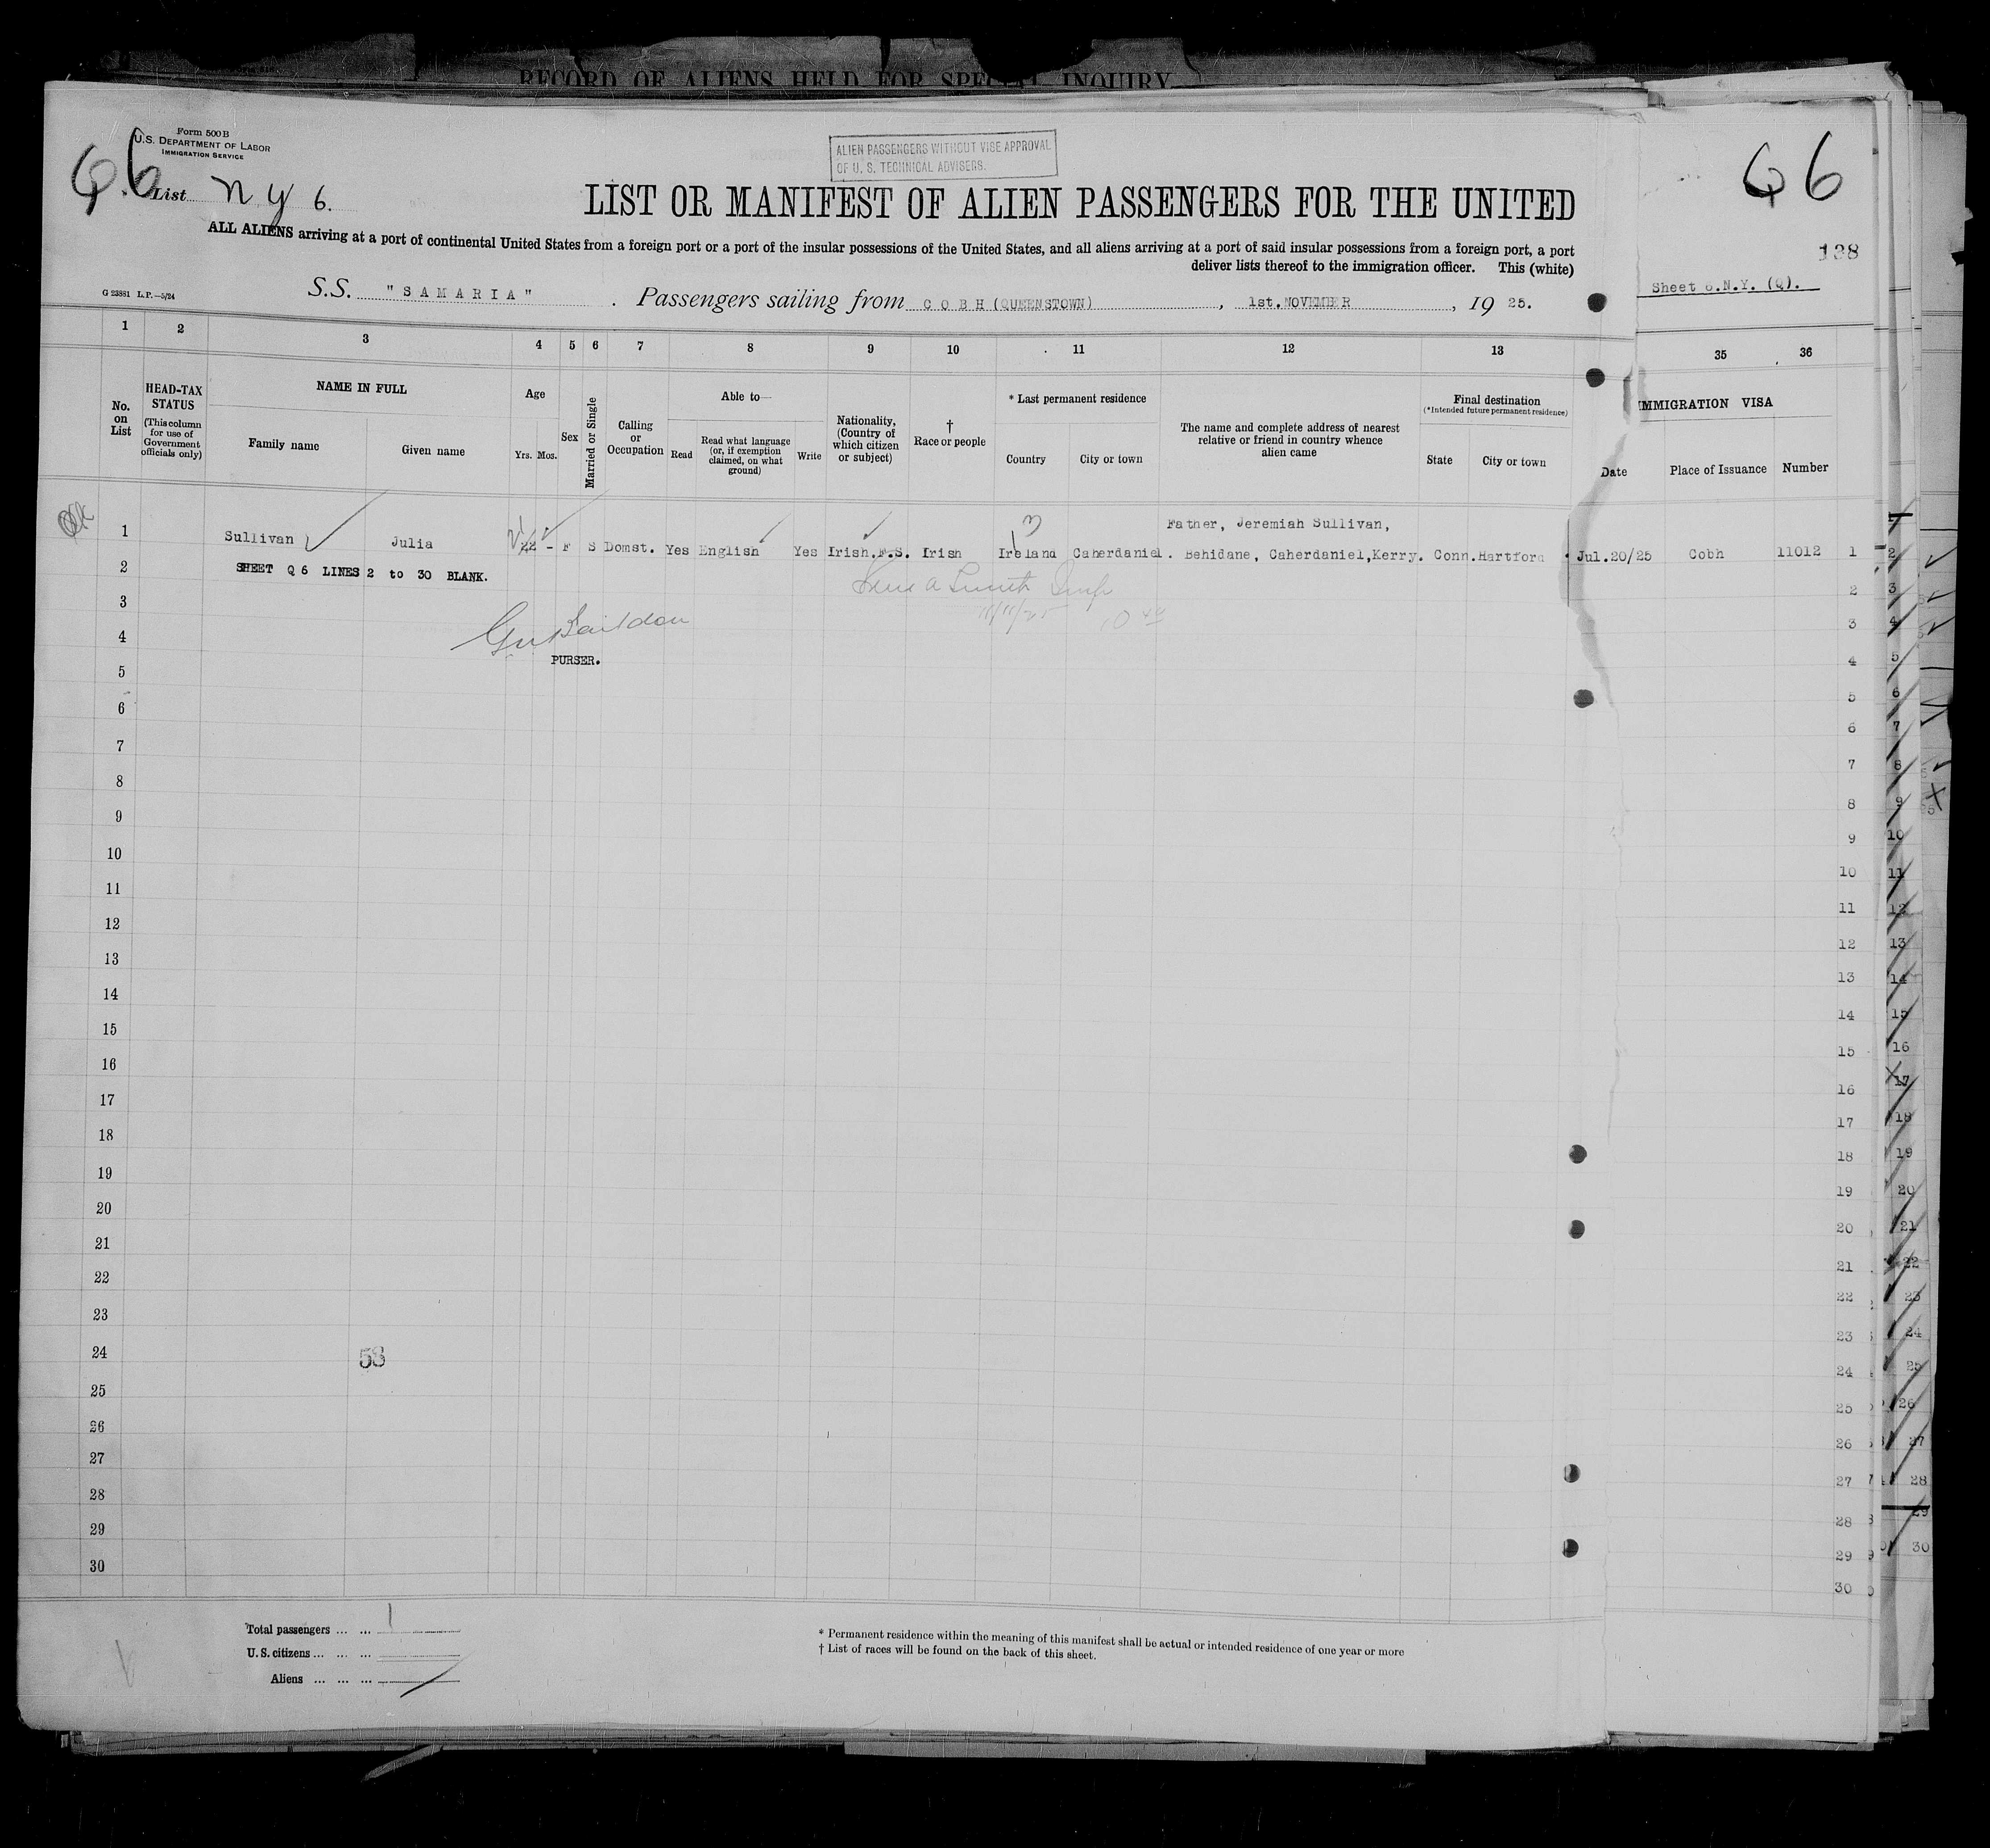 RECORD OF ALIENS HELD FOR SPECIAL INQUIRY
Form 500B
U.S. DEPARTMENT OF LABOR
IMMIGRATION SERVICE
Q.6
List N Y 6.
ALIEN PASSENGERS WITHOUT VISE APPROVAL
OF U. S. TECHNICAL ADVISERS.
Q 6
138
Sheet 6.N.Y. (Q).
LIST OR MANIFEST OF ALIEN PASSENGERS FOR THE UNITED
ALL ALIENS arriving at a port of continental United States from a foreign port or a port of the insular possessions of the United States, and all aliens arriving at a port of said insular possessions from a foreign port, a port
deliver lists thereof to the immigration officer. This (white)
G 23881 L.P.—5/24
S.S. "SAMARIA". Passengers sailing from COBH (QUEENSTOWN), 1st. NOVEMBER, 19 25.
1 2 3 4 5 6 7 8 9 10 11 12 13 35 36
No. on List
HEAD-TAX STATUS (This column for use of Government officials only)
NAME IN FULL
Family name Given name
Age
Yrs. Mos.
Sex
Married or Single
Calling or Occupation
Able to—
Read
Read what language (or, if exemption claimed, on what ground)
Write
Nationality, (Country of which citizen or subject)
† Race or people
* Last permanent residence
Country City or town
The name and complete address of nearest relative or friend in country whence alien came
Final destination
(*Intended future permanent residence)
State City or town
IMMIGRATION VISA
Date Place of Issuance Number
Father, Jeremiah Sullivan,
1 Sullivan Julia 22 - F S Domst. Yes English Yes Irish.F.S. Irish Ireland Caherdaniel. Behidane, Caherdaniel,Kerry. Conn. Hartford Jul.20/25 Cobh 11012 1
2 SHEET Q 6 LINES 2 to 30 BLANK. 2
3 3
4 4
PURSER.
5 5
6 6
7 7
8 8
9 9
10 10
11 11
12 12
13 13
14 14
15 15
16 16
17 17
18 18
19 19
20 20
21 21
22 22
23 23
24 53 24
25 25
26 26
27 27
28 28
29 29
30 30
Total passengers ... ... 1
U.S. citizens ... ... ...
Aliens ... ... ...
* Permanent residence within the meaning of this manifest shall be actual or intended residence of one year or more
† List of races will be found on the back of this sheet.